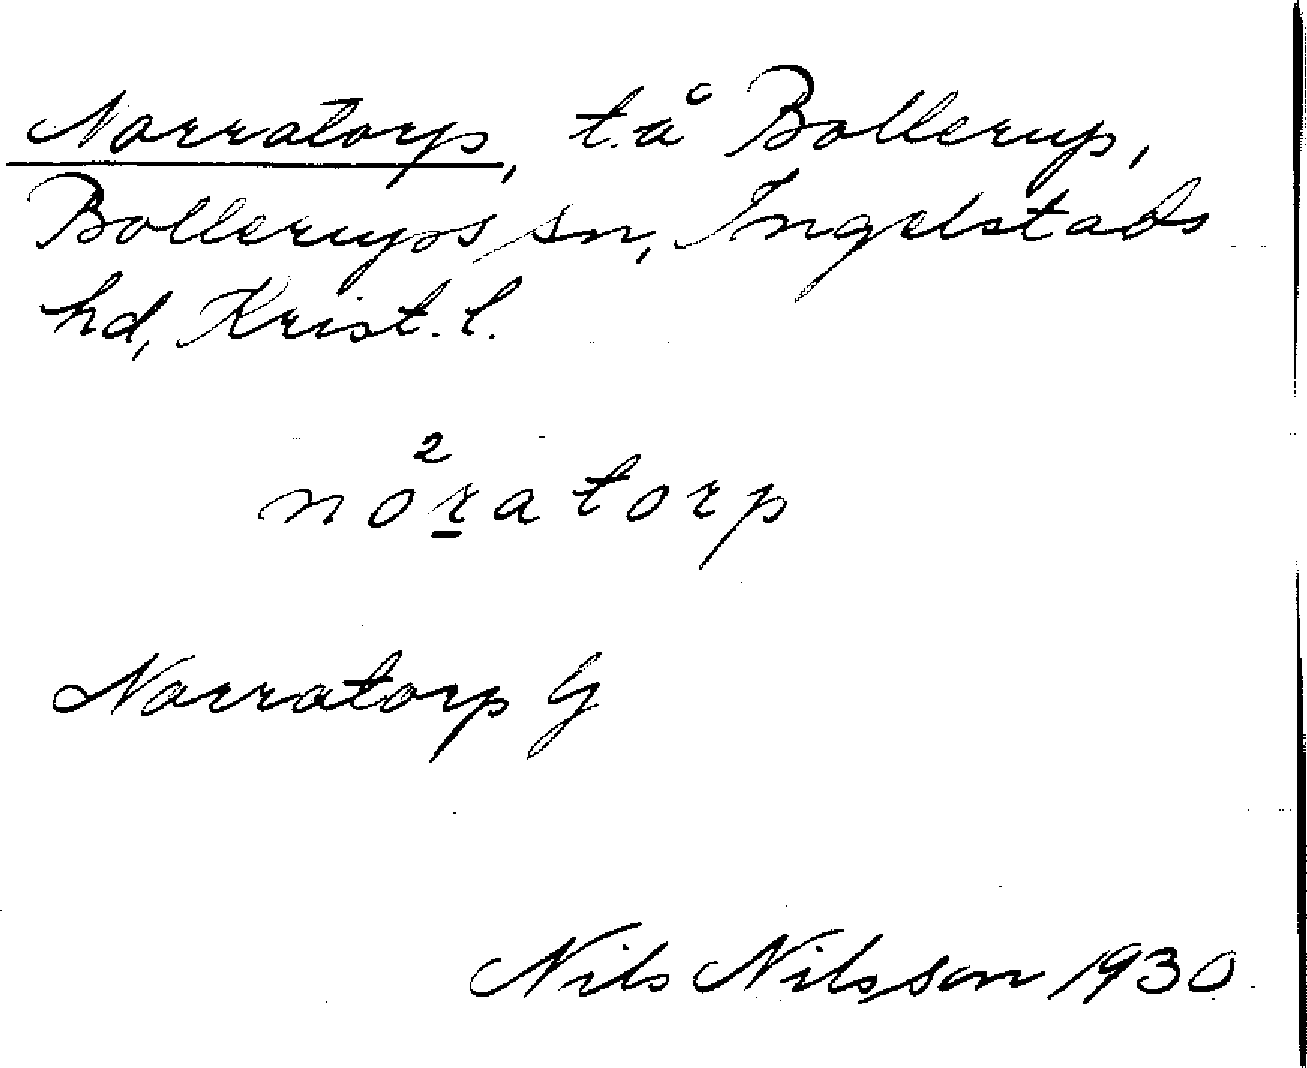 Norratorp, t.å Bollerup,
Bollerups sn, Ingelstads
hd, Krist. l.
2
nor̲atorp
Norratorp G
Nils Nilsson 1930